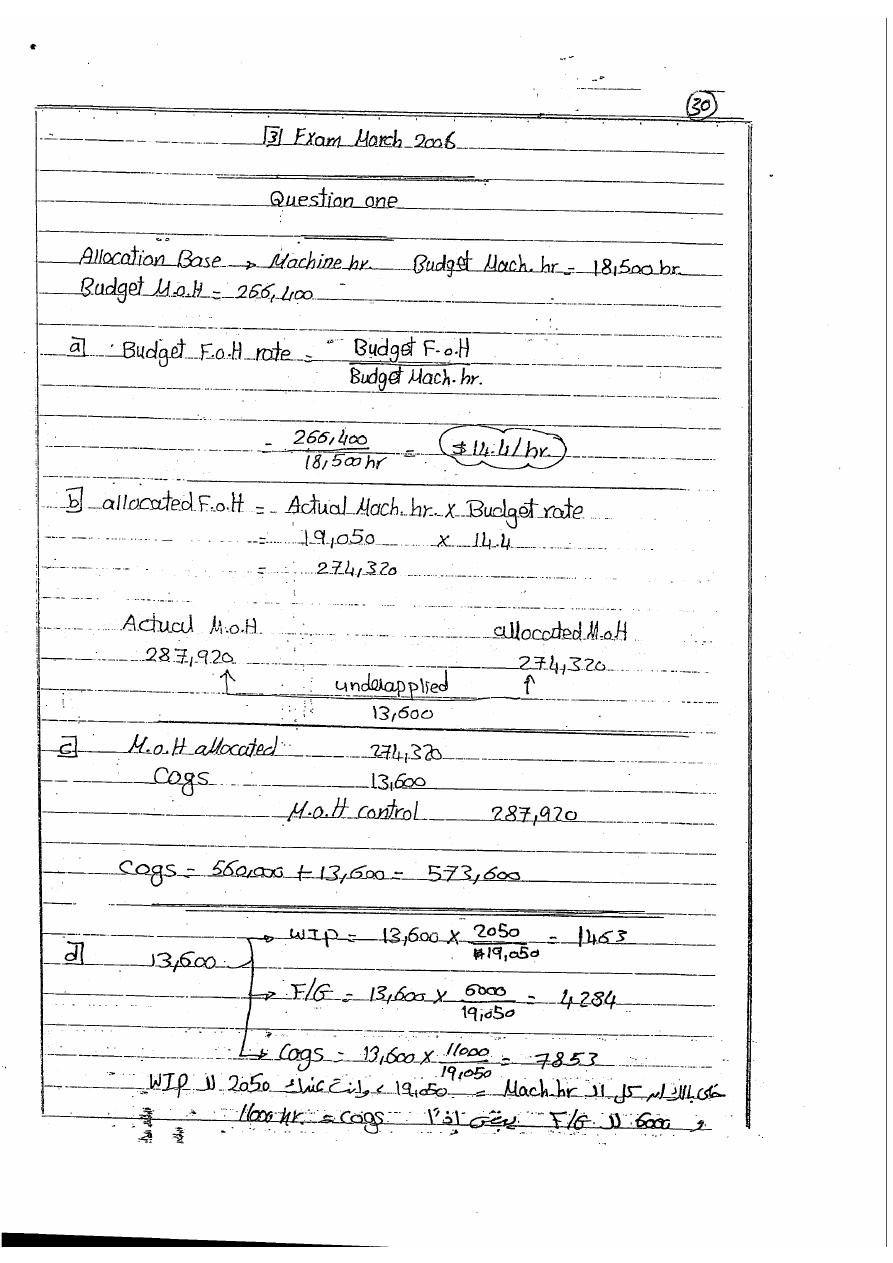 30
3 Exam March 2006
Question one
Allocation Base → Machine hr. Budget Mach. hr = 18,500 hr.
Budget M.o.H = 266,400
a) Budget F.o.H rate = Budget F.o.H
Budget Mach. hr.
= 266,400 / 18,500 hr = $ 14.4/hr.
b) allocated F.o.H = Actual Mach. hr. x Budget rate
= 19,050 x 14.4
= 274,320
Actual M.o.H. allocated M.o.H
287,920 274,320
underapplied
13,600
c) M.o.H allocated 274,320
Cogs 13,600
M.o.H control 287,920
Cogs = 560,000 + 13,600 = 573,600
→ WIP = 13,600 x 2050 / 19,050 = 1463
d) 13,600
→ F/G = 13,600 x 6000 / 19,050 = 4284
→ Cogs = 13,600 x 11000 / 19,050 = 7853
خلى بالك ان كل الـ Mach hr = 19,050 وانت عندك 2050 للـ WIP
و 6000 للـ F/G يبقى اذاً 11000 hr. = cogs